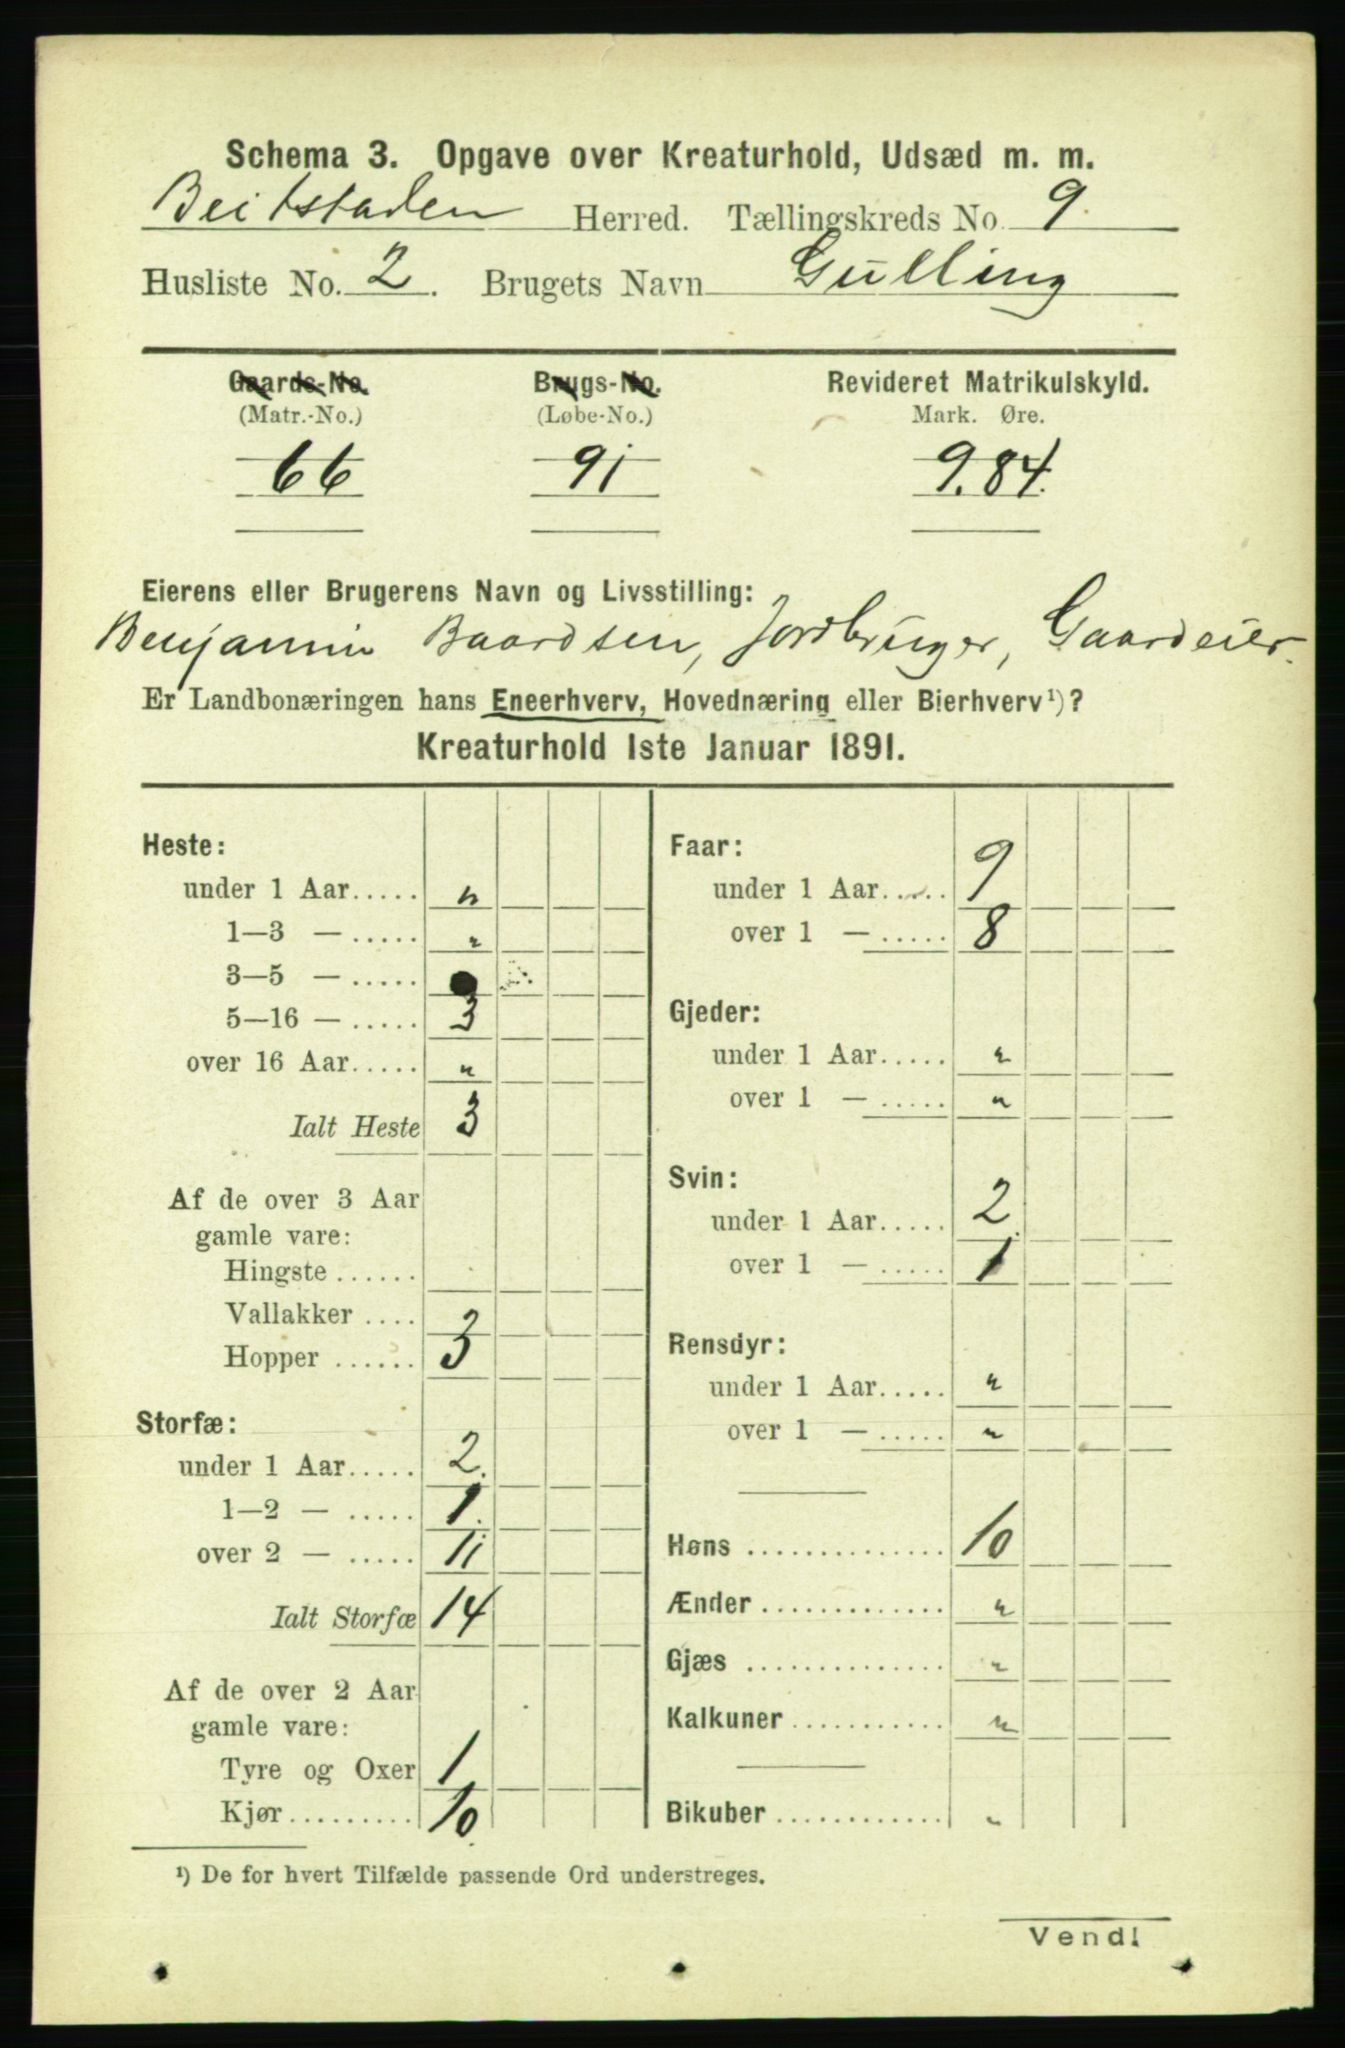 Schema 3. Opgave over Kreaturhold, Udsæd m. m.
Beitstaden Herred. Tællingskreds No. 9.
Husliste No. 2. Brugets Navn Gulling
Gaards-No. Brugs-No. Revideret Matrikulskyld.
(Matr.-No.) (Løbe-No.) Mark. Øre.
66 91 9.84.
Eierens eller Brugerens Navn og Livsstilling:
Benjamin Baardsen, Jordbruger, Gaardeier.
Er Landbonæringen hans Eneerhverv, Hovednæring eller Bierhverv¹)?
Kreaturhold 1ste Januar 1891.
Heste:
under 1 Aar..... "
1—3 — ..... "
3—5 — .....
5—16 — ..... 3
over 16 Aar..... "
Ialt Heste 3
Af de over 3 Aar
gamle vare:
Hingste ......
Vallakker ....
Hopper ...... 3
Storfæ:
under 1 Aar..... 2.
1—2 — ..... 1.
over 2 — ..... 11
Ialt Storfæ 14
Af de over 2 Aar
gamle vare:
Tyre og Oxer 1
Kjør......... 10.
Faar:
under 1 Aar..... 9
over 1 — ..... 8
Gjeder:
under 1 Aar..... "
over 1 — ..... "
Svin:
under 1 Aar..... 2.
over 1 — ..... 1
Rensdyr:
under 1 Aar..... "
over 1 — ..... "
Høns .............. 10
Ænder ............. "
Gjæs .............. "
Kalkuner ........... "
Bikuber ............ "
¹) De for hvert Tilfælde passende Ord understreges.
Vend!